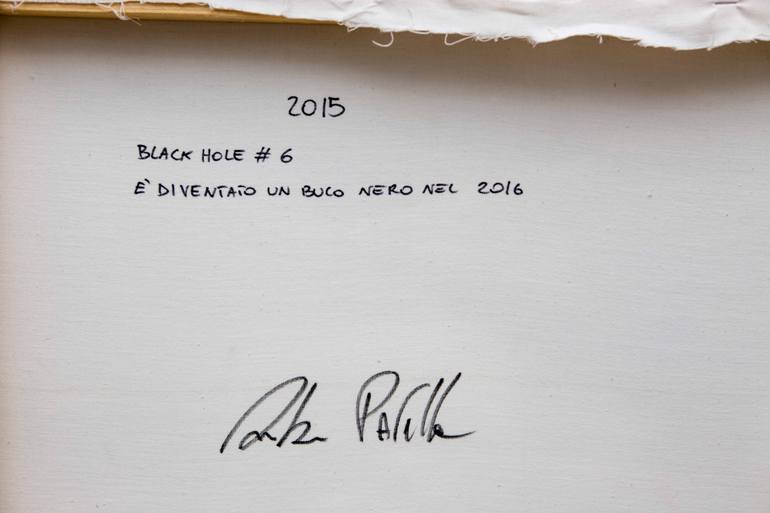 2015
BLACK HOLE # 6
E' DIVENTATO UN BUCO NERO NEL 2016